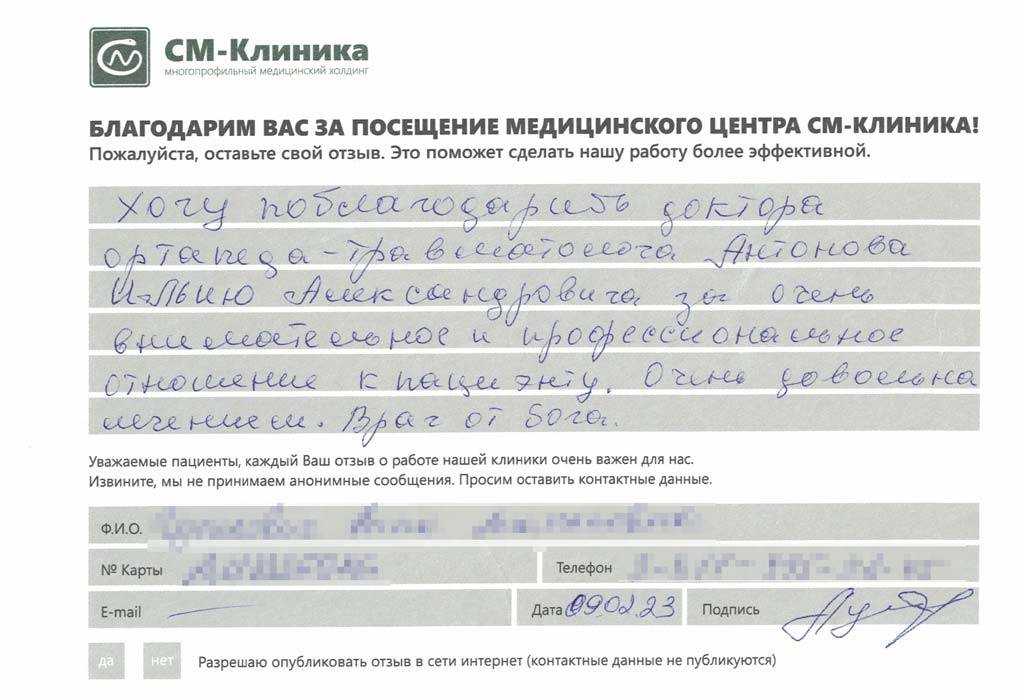 СМ-Клиника
многопрофильный медицинский холдинг
БЛАГОДАРИМ ВАС ЗА ПОСЕЩЕНИЕ МЕДИЦИНСКОГО ЦЕНТРА СМ-КЛИНИКА!
Пожалуйста, оставьте свой отзыв. Это поможет сделать нашу работу более эффективной.
Хочу поблагодарить доктора
ортапеда-травматолога Антонова
Илью Александровича за очень
внимательное и профессиональное
отношение к пациэнту. Очень довольна
лечением. Врач от Бога.
Уважаемые пациенты, каждый Ваш отзыв о работе нашей клиники очень важен для нас.
Извините, мы не принимаем анонимные сообщения. Просим оставить контактные данные.
Ф.И.О.
№ Карты Телефон
E-mail — Дата 09.02.23 Подпись
да нет Разрешаю опубликовать отзыв в сети интернет (контактные данные не публикуются)